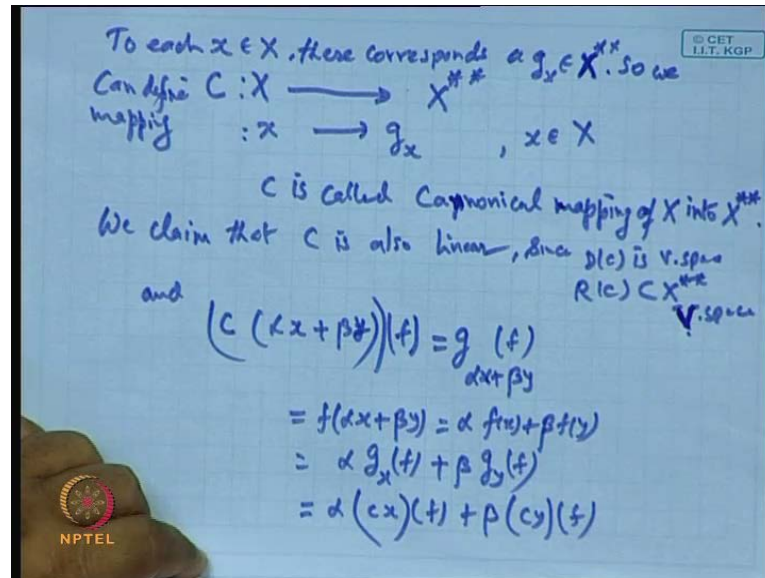 To each x ∈ X, there corresponds a g_x ∈ X**. So we
© CET
I.I.T. KGP
Can define C : X ⟶ X**
mapping : x ⟶ g_x , x ∈ X
C is called Caynonical mapping of X into X**.
We claim that C is also linear, since D(C) is V.space
and R(C) ⊂ X**
V.space
(C (αx + βy))(f) = g_{αx+βy} (f)
= f(αx + βy) = α f(x) + β f(y)
= α g_x(f) + β g_y(f)
= α (Cx)(f) + β (Cy)(f)
NPTEL